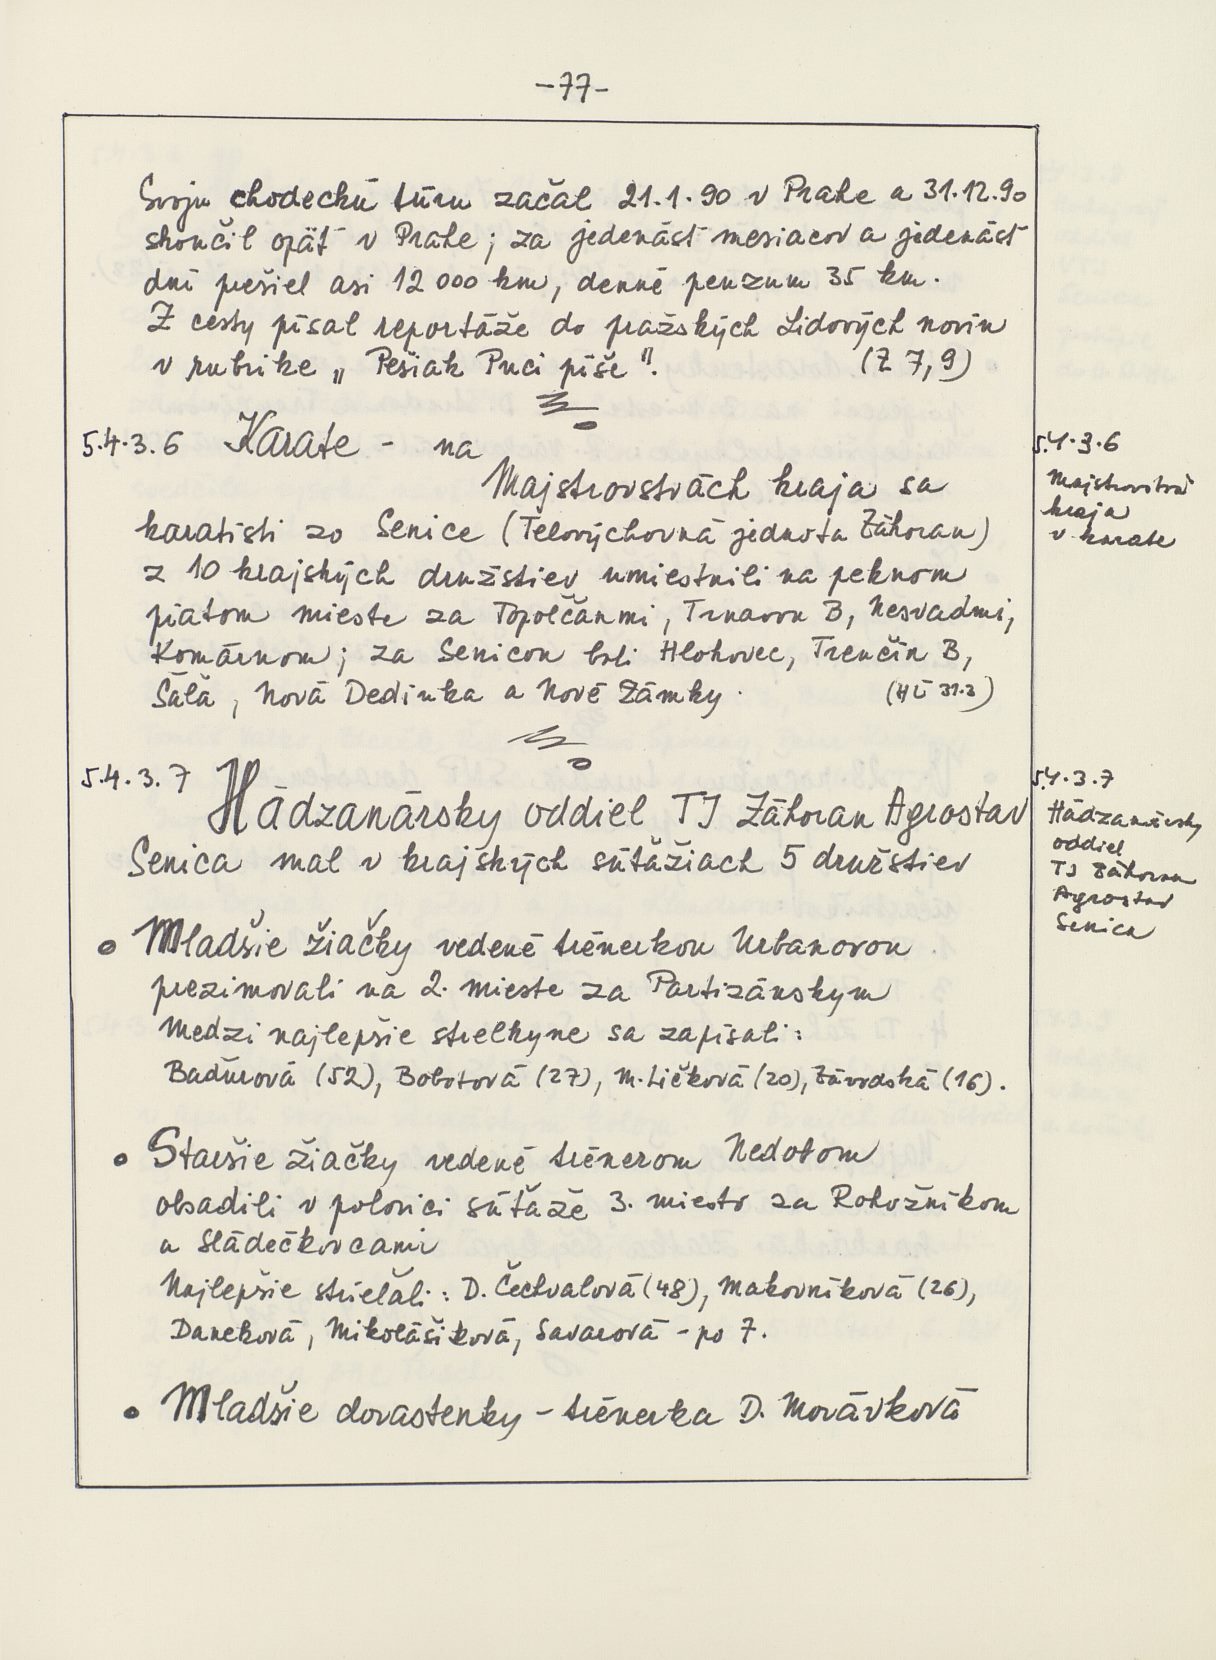 -77-
Svoju chodeckú túru začal 21.1.90 v Prahe a 31.12.90
skončil opäť v Prahe; za jedenásť mesiacov a jedenásť
dní prešiel asi 12 000 km, denné penzum 35 km.
Z cesty písal reportáže do pražských Lidových novín
v rubrike „Pešiak Puci píše". (Z 7,9)
5.4.3.6 Karate - na
Majstrovstvách kraja sa
karatisti zo Senice (Telovýchovná jednota Záhoran)
z 10 krajských družstiev umiestnili na peknom
piatom mieste za Topoľčanmi, Trnavou B, Nesvadmi,
Komárnom; za Senicou boli Hlohovec, Trenčín B,
Šaľa, Nová Dedinka a Nové Zámky. (HĽ 31.3)
5.4.3.6
Majstrovstvá
kraja
v karate
5.4.3.7 Hádzanársky oddiel TJ Záhoran Agrostav
Senica mal v krajských súťažiach 5 družstiev
5.4.3.7
Hádzanársky
oddiel
TJ Záhoran
Agrostav
Senica
• Mladšie žiačky vedené trénerkou Urbanovou
prezimovali na 2. mieste za Partizánskym
Medzi najlepšie strelkyne sa zapísali:
Baďurová (52), Bobotová (27), M. Ličková (20), Závodská (16).
• Staršie žiačky vedené trénerom Nedobom
obsadili v polovici súťaže 3. miesto za Rohožníkom
a Sládečkovcami
Najlepšie strieľali: D. Čechvalová (48), Makovníková (26),
Daneková, Mikolášiková, Savarová - po 7.
• Mladšie dorastenky - trénerka D. Morávková